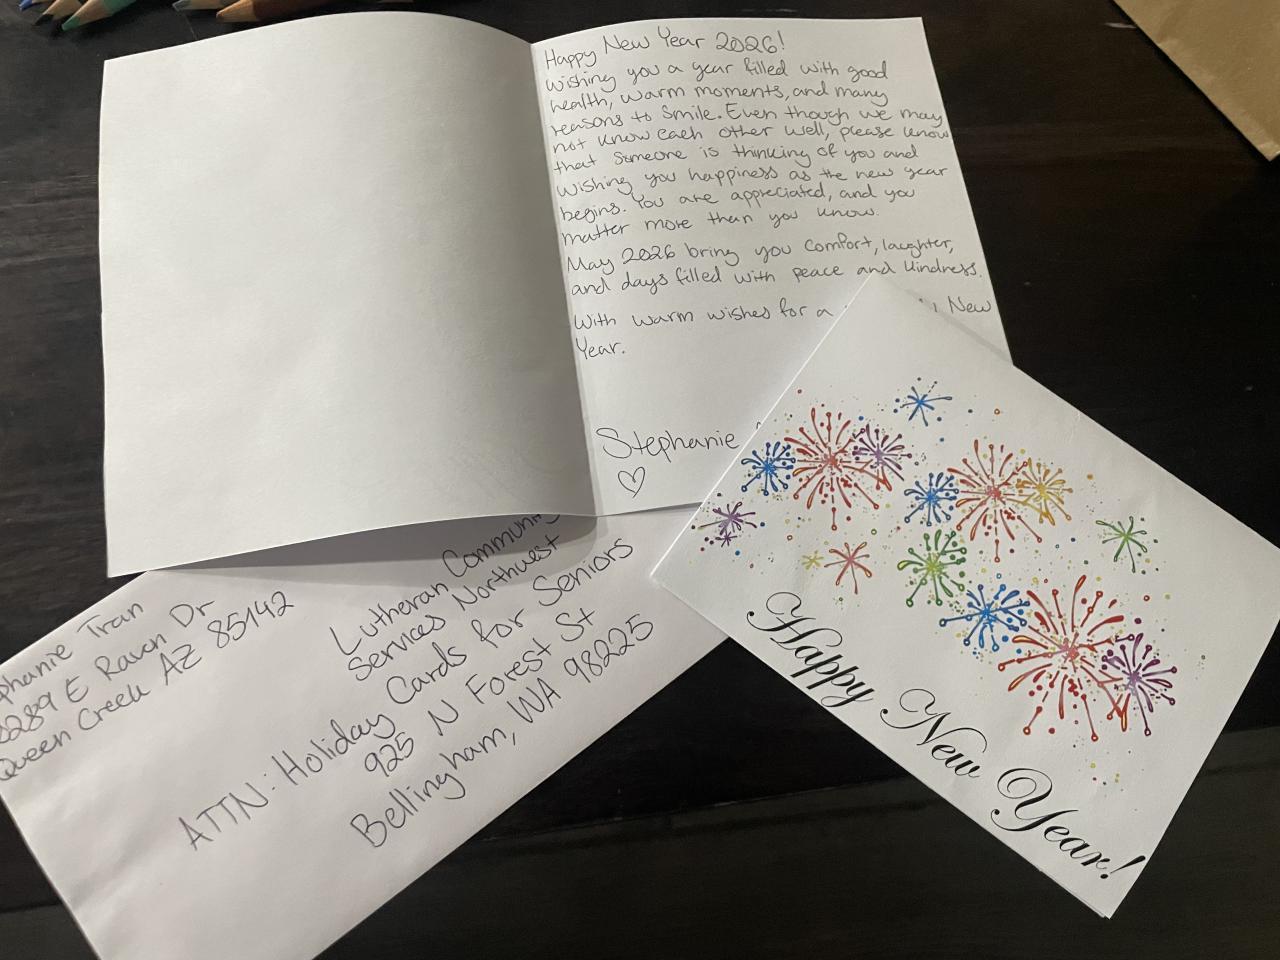 Happy New Year 2026!
Wishing you a year filled with good
health, warm moments, and many
reasons to smile. Even though we may
not know each other well, please know
that someone is thinking of you and
wishing you happiness as the new year
begins. You are appreciated, and you
matter more than you know.
May 2026 bring you comfort, laughter,
and days filled with peace and kindness.
With warm wishes for a New
Year.
Stephanie
Tran
E Raven Dr
Queen Creek AZ 85142
Lutheran Community
Services Northwest
ATTN: Holiday Cards for Seniors
925 N Forest St
Bellingham, WA 98225
Happy New Year!